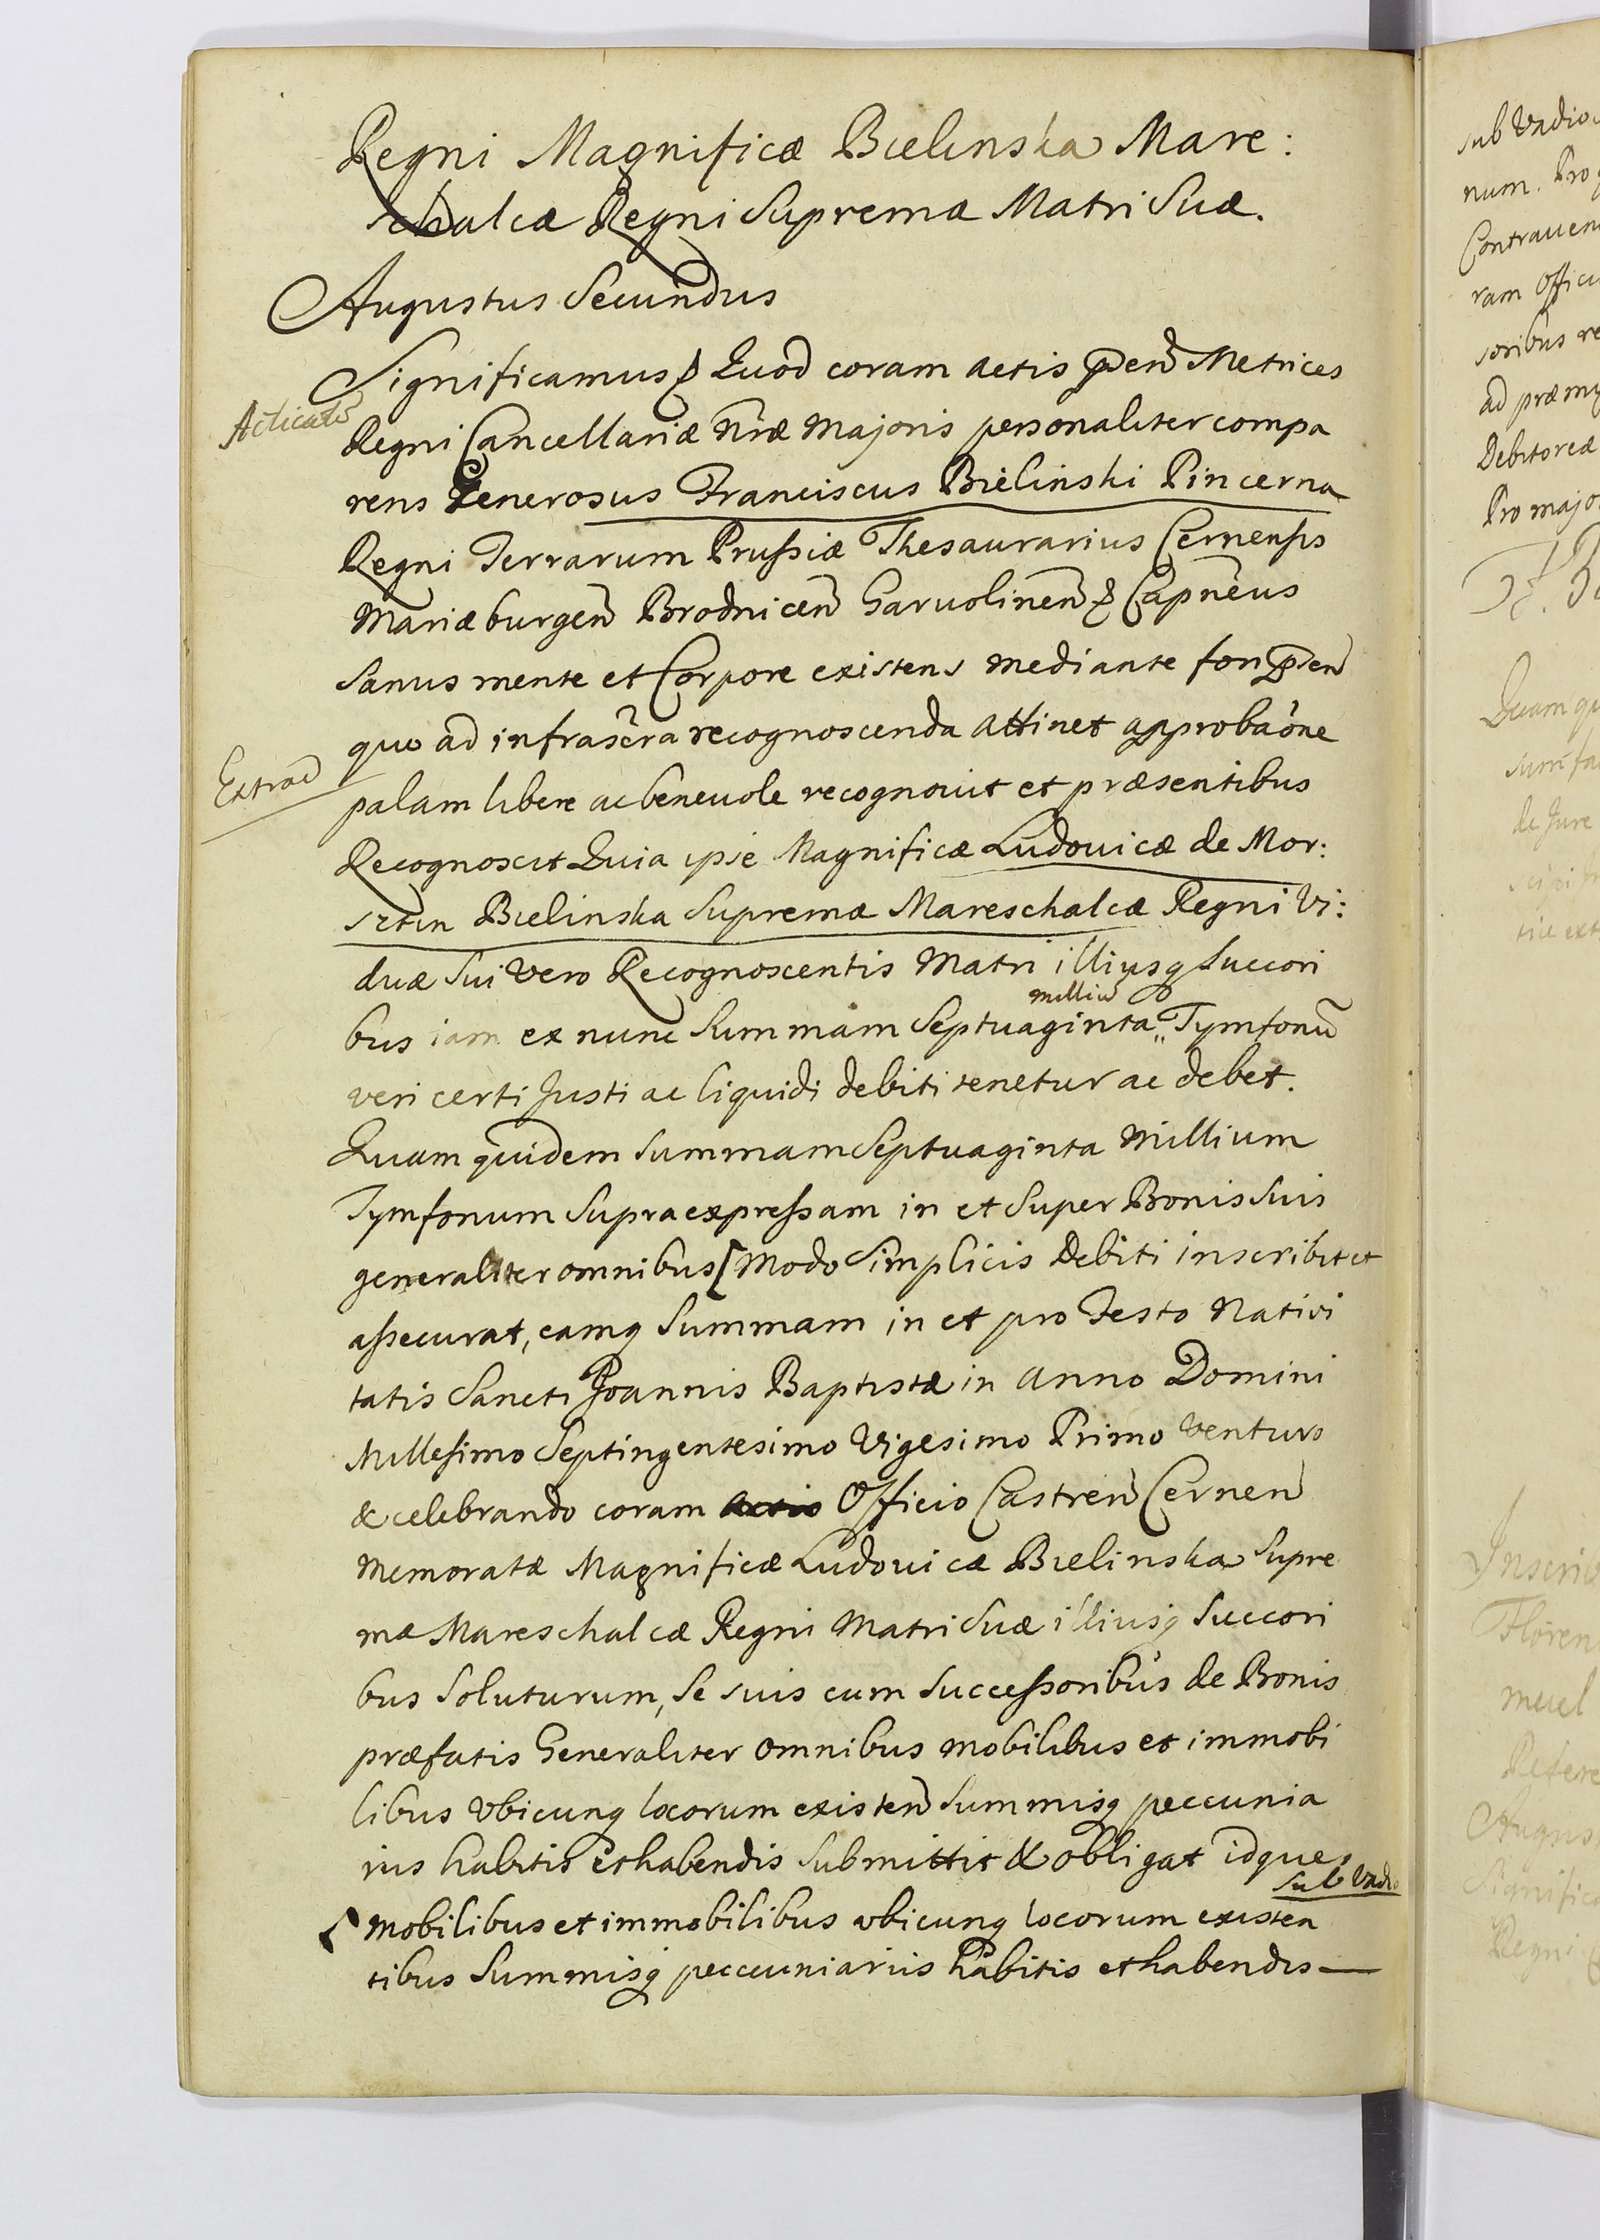 Regni Magnificæ Bielinska Mare:
schalcæ Regni Supremæ Matri Suæ.
Augustus Secundus
Significamus & Quod coram actis p̃sen̄ Metrices
Acticatō
Regni Cancellariæ N̄ræ Majoris personaliter compa
rens Generosus Franciscus Bielinski Pincerna
Regni Terrarum Prussiæ Thesaurarius Cernensis
Mariæburgen̄ Brodnicen̄ Garvolinen̄ & Capnēus
Sanus mente et Corpore existens mediante p̃sen̄
quo ad infrascr̄a recognoscenda attinet approbaōne
Extrad
palam libere ac benevole recognovit et præsentibus
Recognoscit Quia ipse Magnificæ Ludovicæ de Mor:
sztin Bielinska Supremæ Mareschalcæ Regni Vi:
duæ Sui vero Recognoscentis Matri illiusq Succori
bus iam ex nunc Summam Septuaginta milliū Tymfonū
veri certi Justi ac liquidi debiti tenetur ac debet.
Quam quidem Summam Septuaginta Millium
Tymfonum Supra expressam in et Super Bonis Suis
generaliter omnibus [ Modo Simplicis Debiti inscribit et
assecurat, eamq Summam in et pro Festo Nativi
tatis Sancti Joannis Baptistæ in Anno Domini
Millesimo Septingentesimo Vigesimo Primo venturo
& celebrando coram actis Officio Castren̄ Cernen̄
Memoratæ Magnificæ Ludovicæ Bielinska Supre
mæ Mareschalcæ Regni Matri Suæ illiusq Succori
bus Soluturum, Se suis cum Successoribus de Bonis
præfatis Generaliter omnibus mobilibus et immobi
libus ubicunq locorum existen̄ Summisq peccunia
riis habitis et habendis Submittit & obligat idque
sub Vadio
[ mobilibus et immobilibus ubicunq locorum existen
tibus Summisq pecuniariis habitis et habendis —
sub Vadio
num. Pro
Contraven
ram Offici
soribus re
ad præmi
Debitoreæ
Pro majo
Quam qu
sum fa
de Jure
Inscrib
Floren
meiel
Refere
August
Signific
Regni